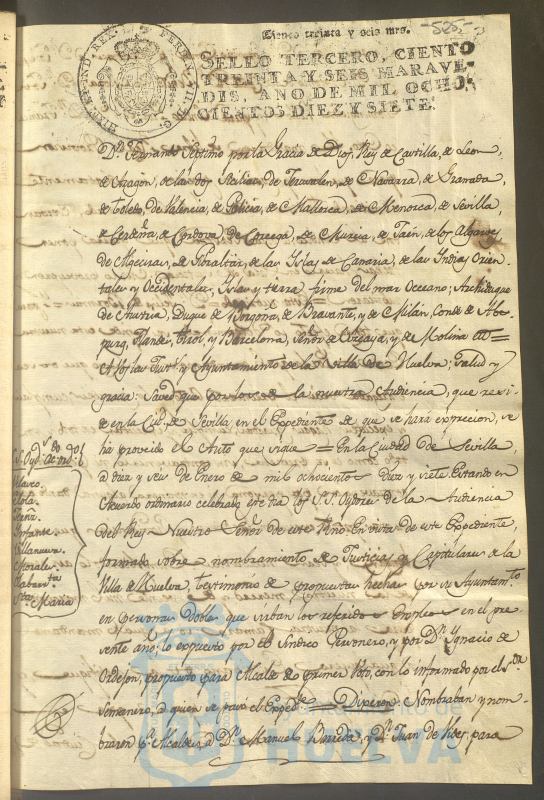 Ciento treinta y seis mrs.
SELLO TERCERO, CIENTO
TREINTA Y SEIS MARAVE-
DIS, AÑO DE MIL OCHO-
CIENTOS DIEZ Y SIETE.
Dn. Fernando Septimo por la Gracia de Dios, Rey de Castilla, de Leon,
de Aragon, de las dos Sicilias, de Jerusalen, de Navarra, de Granada,
de Toledo, de Valencia, de Galicia, de Mallorca, de Menorca, de Sevilla,
de Cerdeña, de Cordova, de Corcega, de Murcia, de Jaén, de los Algarves
de Algeciras, de Gibraltar, de las Islas de Canaria, de las Indias Orien-
tales y Occidentales, Islas y tierra firme del mar Oceano; Archiduque
de Austria, Duque de Borgoña, de Bravante, y de Milán, Conde de Abs-
purg, Flandes, Tirol, y Barcelona, Señor de Vizcaya, y de Molina
A los Justs. y Ayuntamiento de la Villa de Huelva; Salud y
gracia: Saved que por los de la nuestra Audiencia, que resi-
de en la Ciud. de Sevilla, en el Expediente de que se hará expresion, se
ha proveido el Auto que sigue = En la Ciudad de Sevilla,
á diez y seis de Enero de mil ochocientos diez y siete Estando en
Acuerdo ordinario celebrado este dia los S.S. Oydores de la Audiencia
del Rey Nuestro Señor de este Año En vista de este Expediente,
formado sobre nombramiento de Justicia y Capitulares de la
Villa de Huelva, testimonio de propuestas hechas por su Ayuntamto.
en personas dobles que sirban los referidos Empleos en el pre-
sente año, lo expuesto por el Sindico Personero, y por Dn. Ygnacio de
Ordejon, propuesto para Alcalde de primer Voto, con lo informado por el Sor.
Semanero, á quien se paso el Expedte. = Dixeron: Nombraban y nom-
braron pa. Alcaldes á Dn. Manuel Barreda, y Dn. Juan de Mes, para
Infante
Villanueva
Morales
Sta. Maria
HUELVA